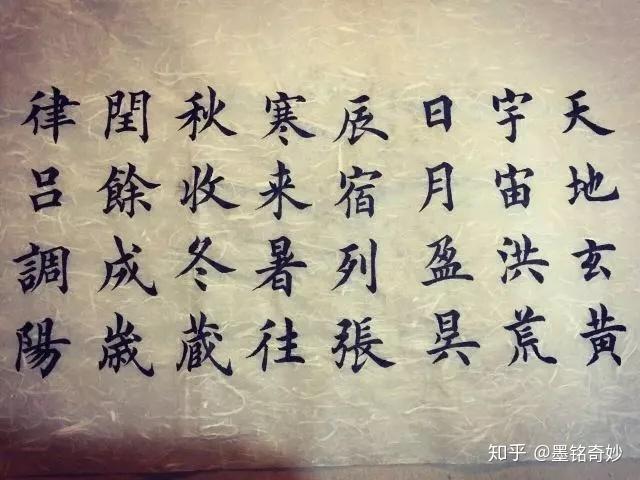 天地玄黃
宇宙洪荒
日月盈昃
辰宿列張
寒来暑往
秋收冬蔵
閏餘成歲
律吕調陽
知乎 @墨铭奇妙